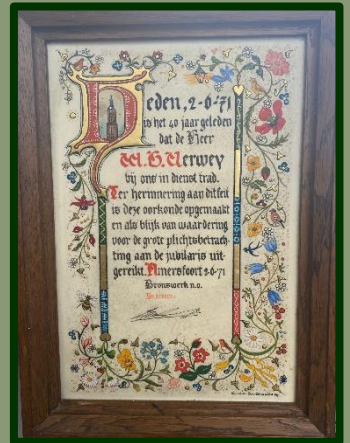 Heden, 2-6-'71
is het 40 jaar geleden
dat de Heer
W. G. Verwey
bij ons in dienst trad.
Ter herinnering aan dit feit
is deze oorkonde opgemaakt
en als blijk van waardering
voor de grote plichtsbetrach-
ting aan de jubilaris uit-
gereikt. Amersfoort 2-6-'71
Bronswerk n.v.